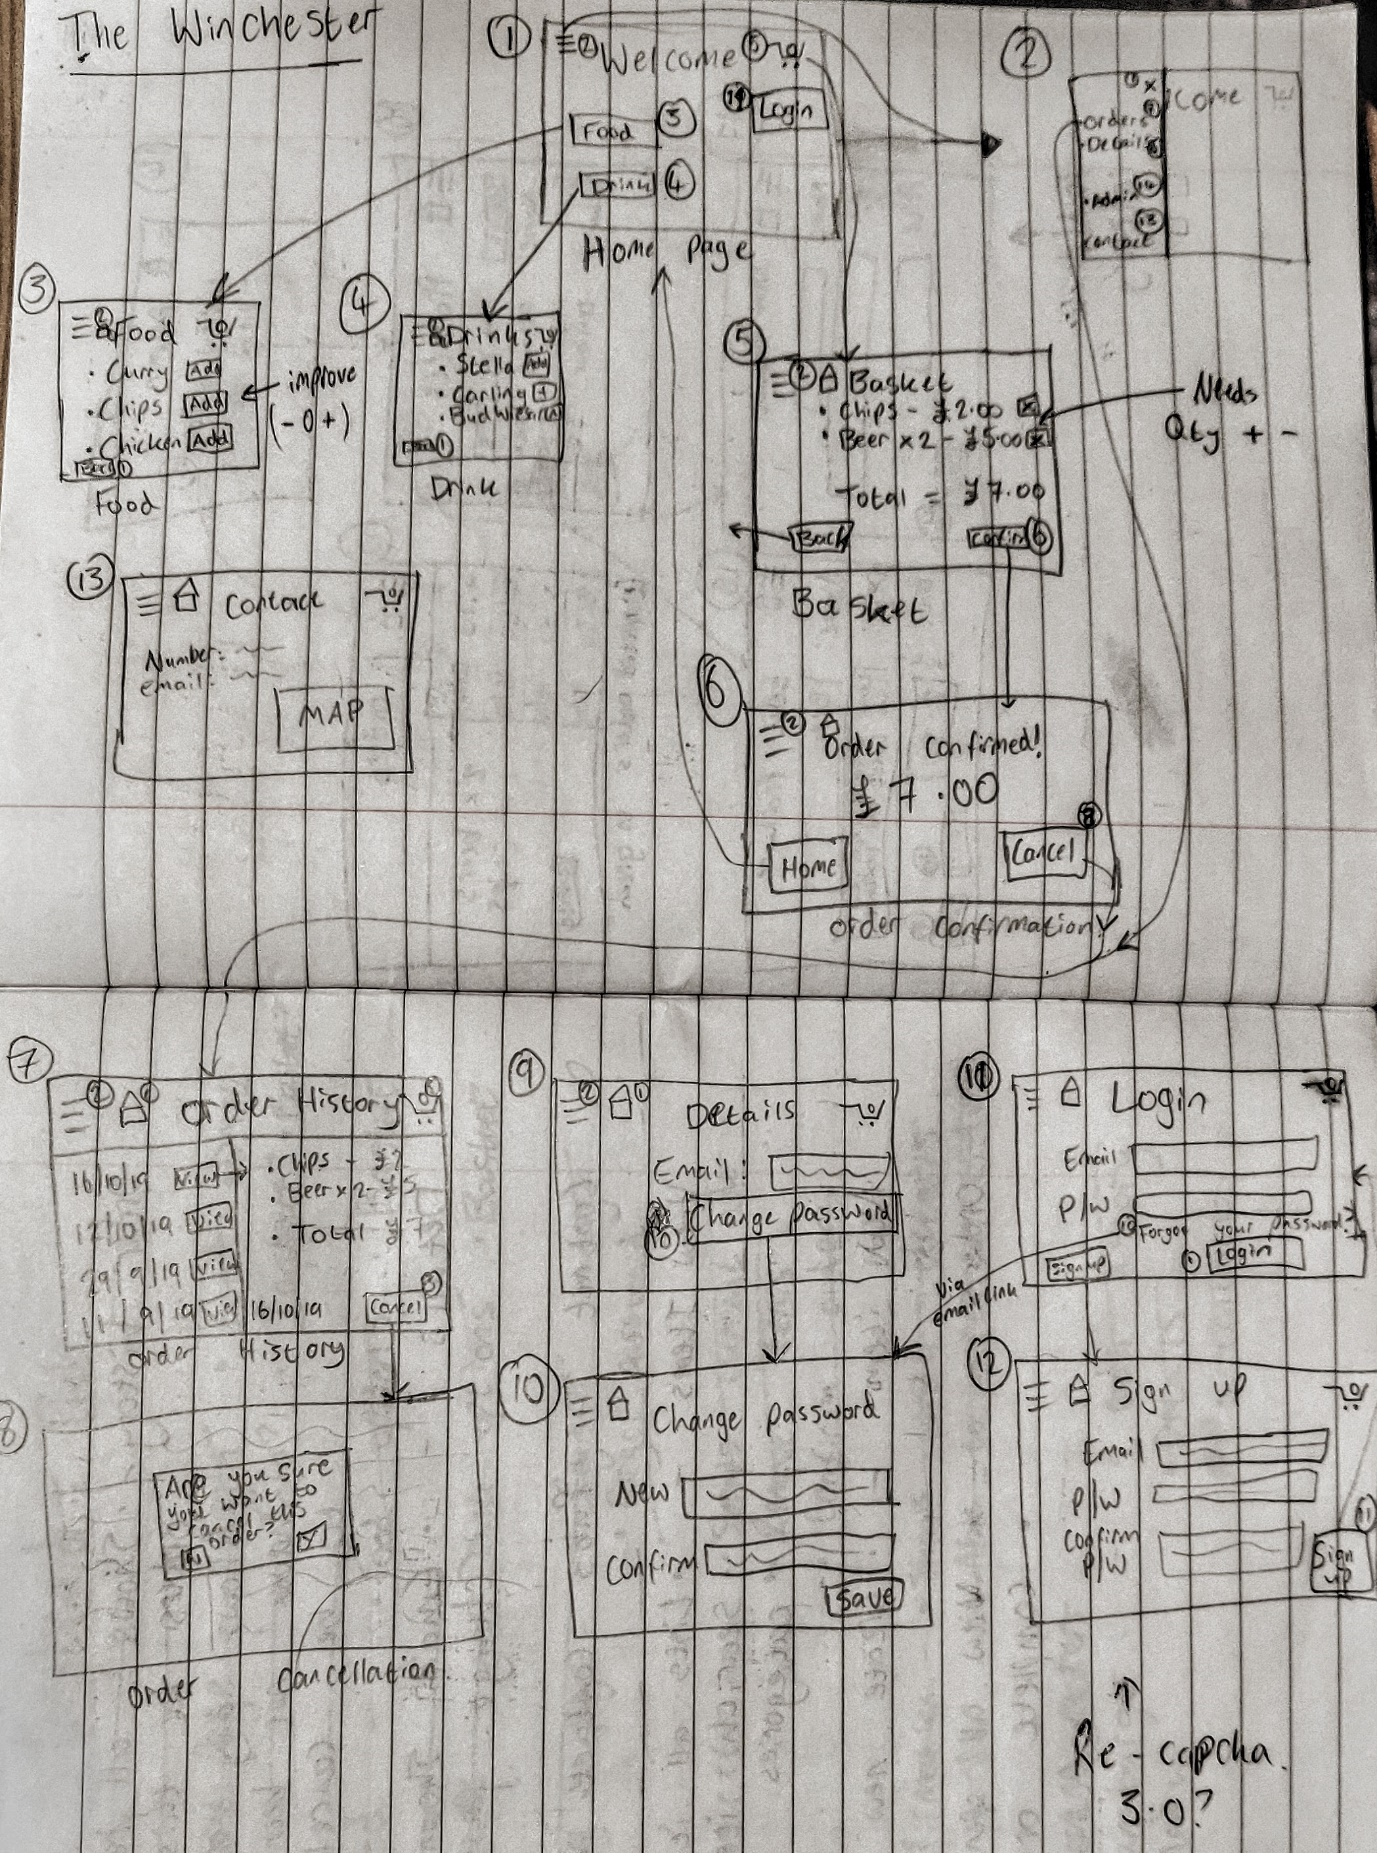 The Winchester
①
② Welcome ⑤
⑪ Login
Food ③
Drink ④
Home Page
②
① x
come
• Orders ⑦
• Details ⑨
• Admin ⑭
contact ⑬
③
② Food
• Curry Add
• Chips Add
• Chicken Add
Back ①
Food
improve
(- 0 +)
④
② Drinks
• Stella Add
• Carling +
Back ①
Drink
⑤
② Basket
• Chips - £2.00 x
• Beer x 2 - £5.00 x
Total = £7.00
Back
Confirm ⑥
Basket
Needs
Qty + -
⑬
Contact
Number:
email:
MAP
⑥
②
Order Confirmed!
£7.00
Home
Cancel
order confirmation
⑦
② ① Order History ⑤
16/10/19 View
12/10/19 View
29/9/19 View
11/9/19
• Chips - £2
• Beer x 2 - £5
• Total £7
16/10/19
Cancel ⑧
order History
⑧
Are you sure
you want to
cancel this
order?
N Y
order cancellation
⑨
② ① Details
Email:
10 Change password
⑩
Change password
New
Confirm
Save
⑪
Login
Email
P/W
⑩ Forgot your password?
Sign up
① Login
Via
email link
⑫
Sign up
Email
P/W
Confirm
P/W
⑪
Sign
up
↑
Re-capcha
3.0?